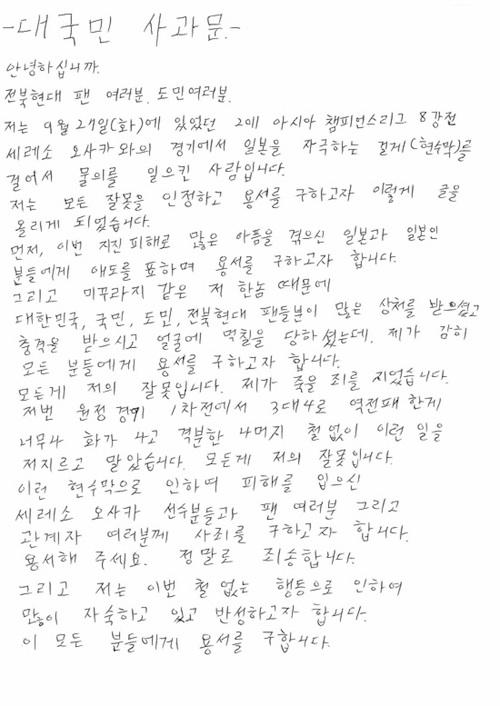 -대국민 사과문.-
안녕하십니까.
전북현대 팬 여러분. 도민여러분.
저는 9월 27일(화)에 있었던 2011 아시아 챔피언스리그 8강전
세레소 오사카와의 경기에서 일본을 자극하는 걸게(현수막)를
걸어서 물의를 일으킨 사람입니다.
저는 모든 잘못을 인정하고 용서를 구하고자 이렇게 글을
올리게 되었습니다.
먼저, 이번 지진피해로 많은 아픔을 겪으신 일본과 일본인
분들에게 애도를 표하며 용서를 구하고자 합니다.
그리고 미꾸라지 같은 저 한놈 때문에
대한민국, 국민, 도민, 전북현대 팬들분이 많은 상처를 받으셨고
충격을 받으시고 얼굴에 먹칠을 당하셨는데, 제가 감히
모든 분들에게 용서를 구하고자 합니다.
모든게 저의 잘못입니다. 제가 죽을 죄를 지었습니다.
저번 원정 경기 1차전에서 3대4로 역전패 한게
너무나 화가 나고 격분한 나머지 철없이 이런 일을
저지르고 말았습니다. 모든게 저의 잘못입니다.
이런 현수막으로 인하여 피해를 입으신
세레소 오사카 선수분들과 팬 여러분 그리고
관계자 여러분께 사죄를 구하고자 합니다.
용서해 주세요. 정말로 죄송합니다.
그리고 저는 이번 철없는 행동으로 인하여
많이 자숙하고 있고 반성하고자 합니다.
이 모든 분들에게 용서를 구합니다.